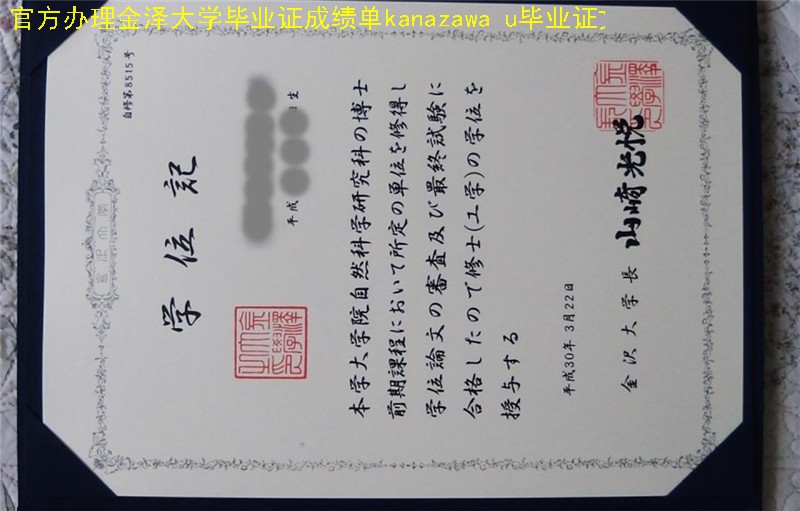 官方办理金泽大学毕业证成绩单kanazawa u毕业证文
自修第8515号
学位記
平成
生
本学大学院自然科学研究科の博士
前期課程において所定の単位を修得し
学位論文の審査及び最終試験に
合格したので修士(工学)の学位を
授与する
平成30年3月22日
金沢大学長 山崎光悦